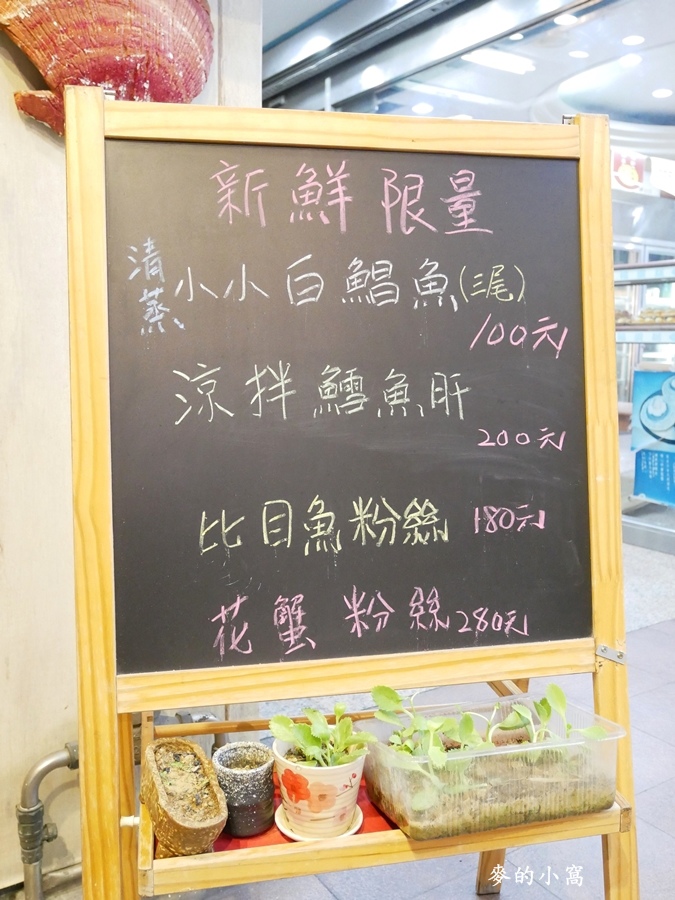 新鮮限量
清蒸 小小白鯧魚(三尾)
100元
涼拌鱈魚肝
200元
比目魚粉絲 180元
花蟹粉絲 280元
麥的小窩